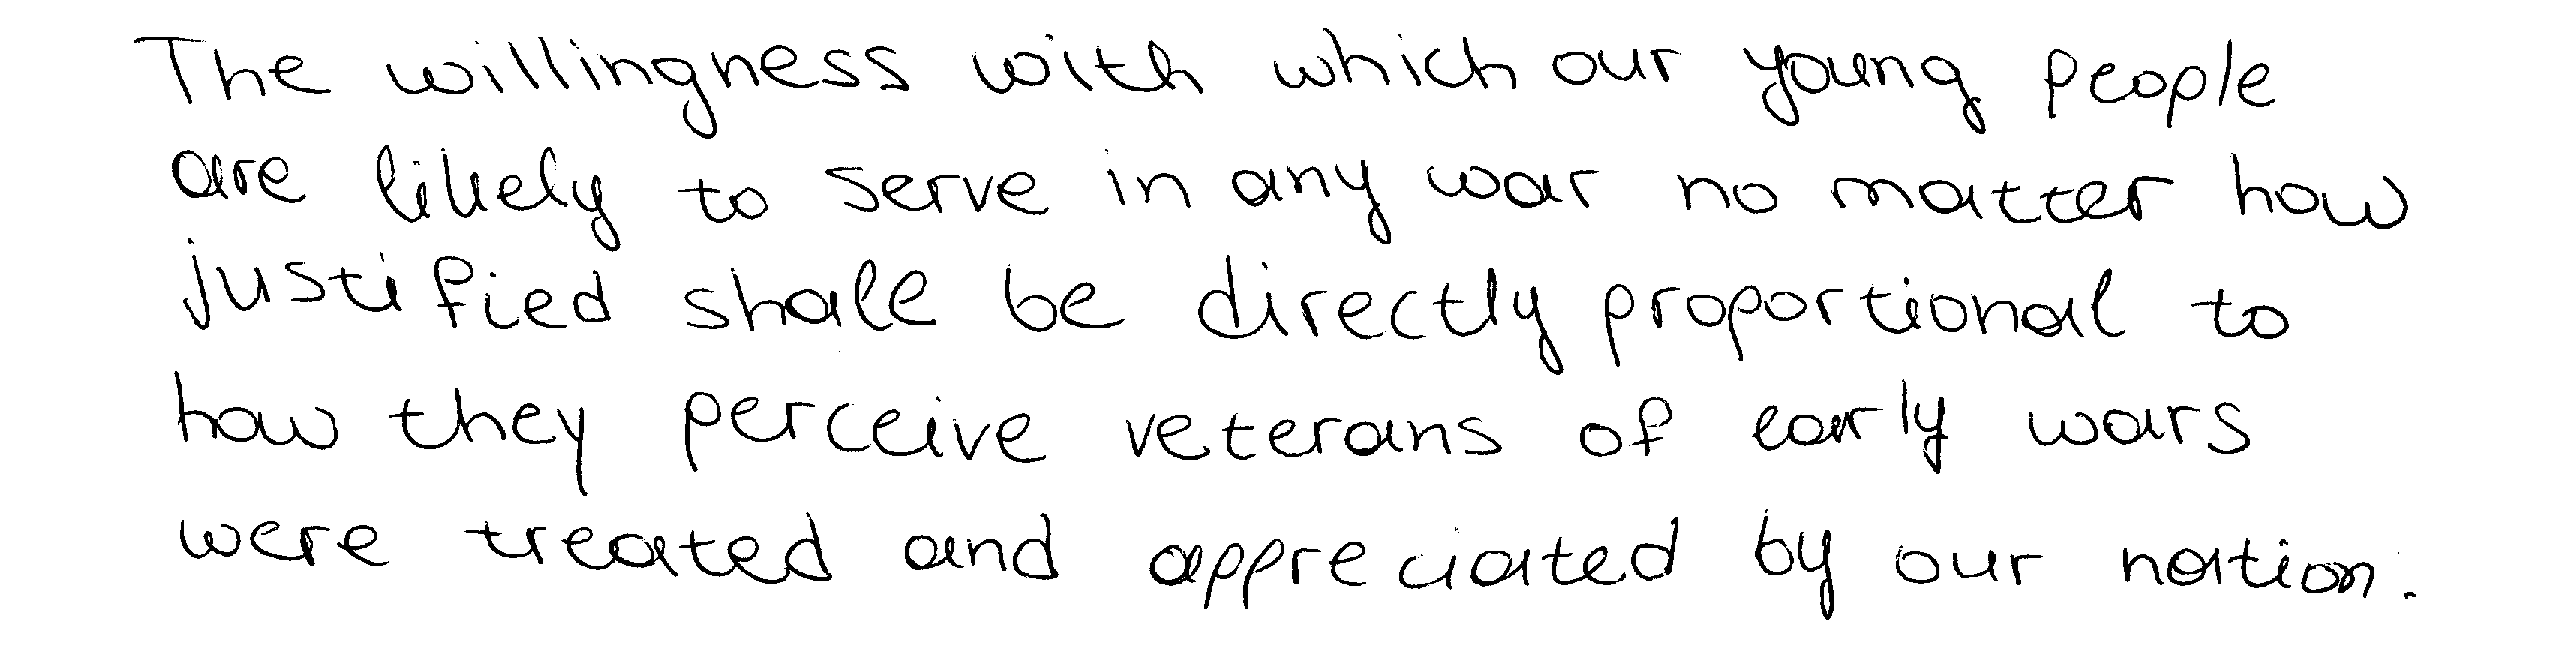 The willingness with which our young people
are likely to serve in any war no matter how
justified shall be directly proportional to
how they perceive veterans of early wars
were treated and appreciated by our nation.